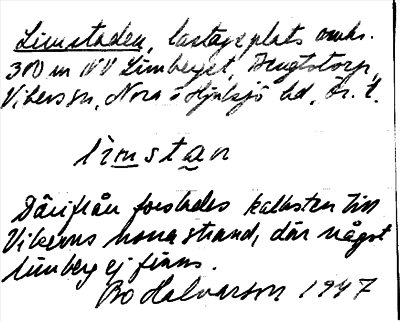 Limstaden, lastagsplats omkr.
300 m NV Limberget, Bengtstorp,
Vikers sn, Nora o Hjulsjö bd, Ör. l.
limstan
Därifrån forslades kalksten till
Vikerns norra strand, där något
limberg ej finns.
Bo Halvarson 1947